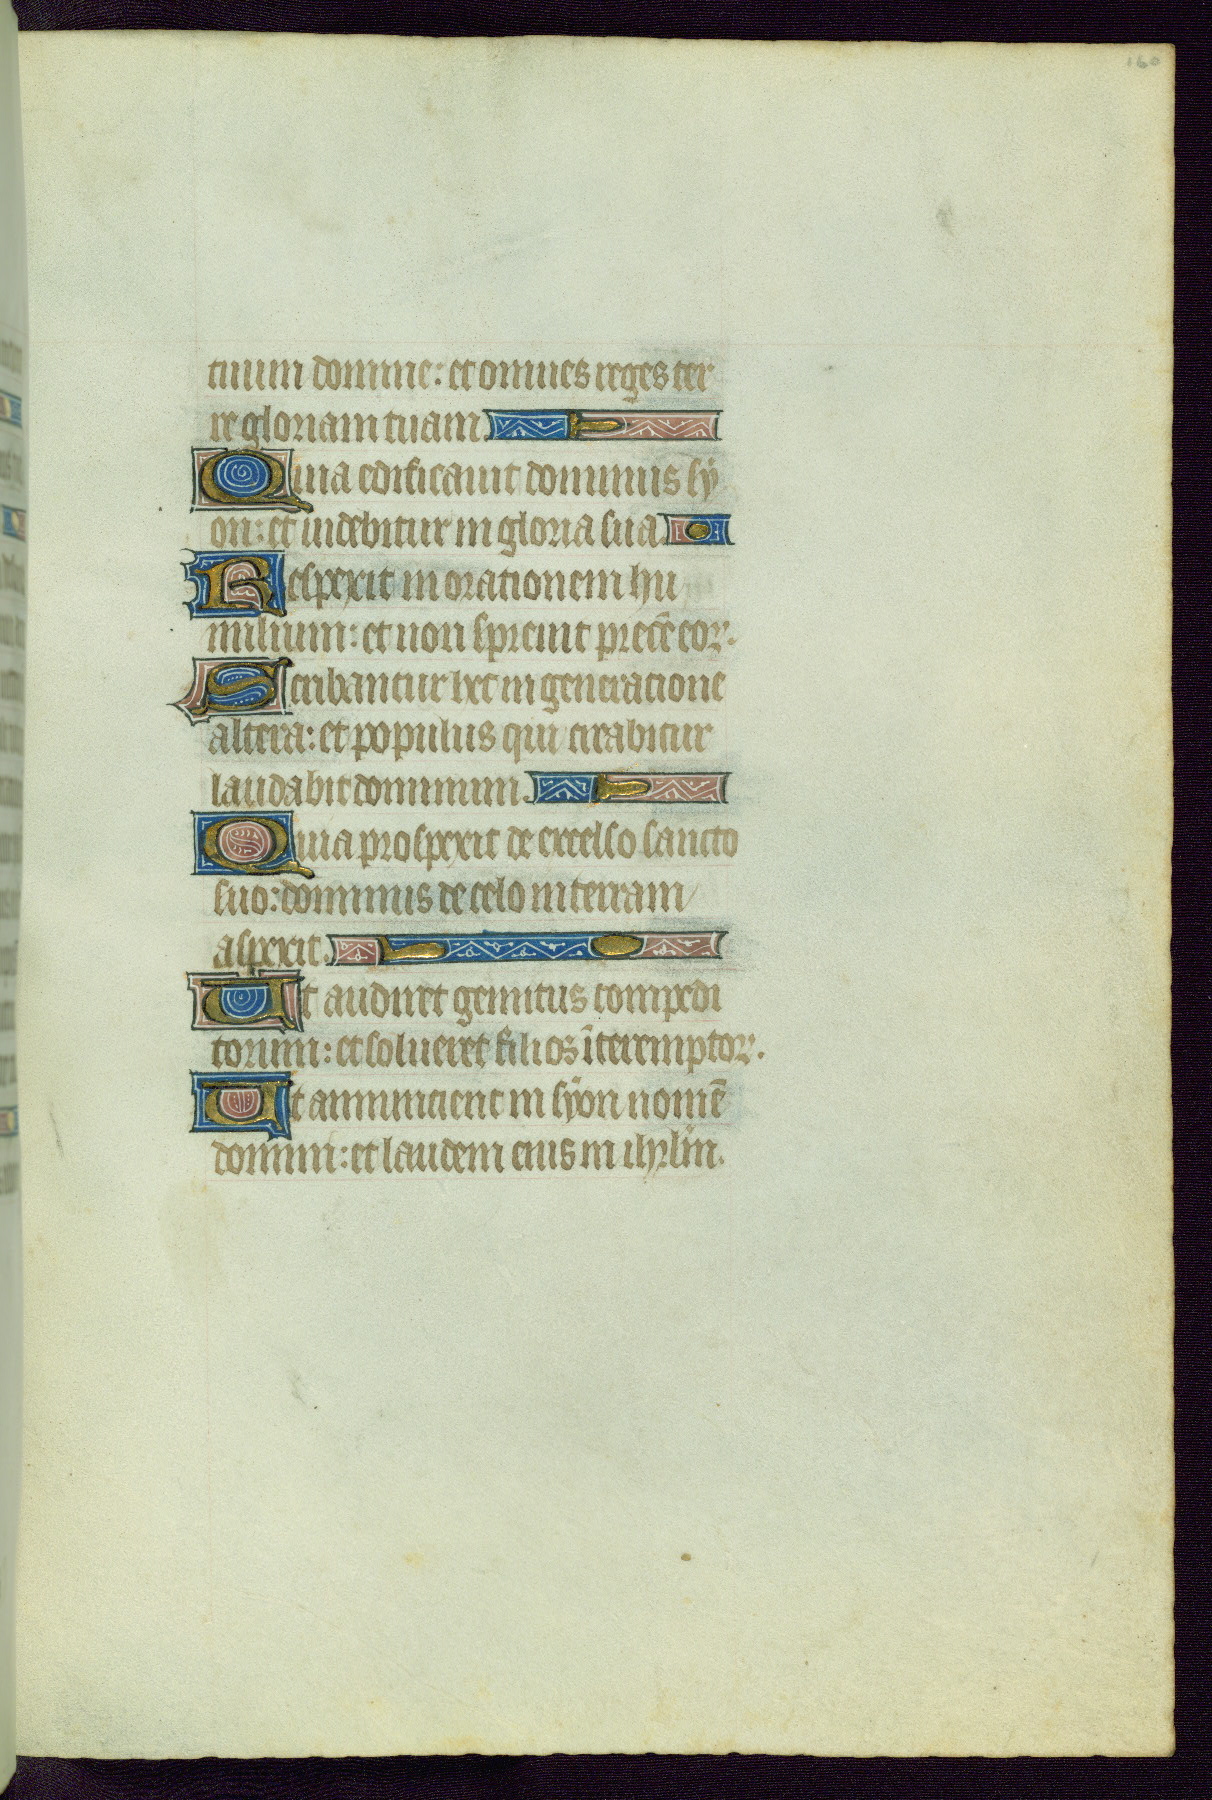 160
tuum domine: et omnes reges ter
re gloriam tuam
Quia edificauit dominus sy
on: et uidebitur in gloria sua
Respexit in orationem hu
milium: et non spreuit precē eoꝝ.
Scribantur hec in generatione
altera: et populus qui creabitur
laudabit dominum.
Quia prospexit de excelso sancto
suo: dominus de celo in terram
aspexit.
Ut audiret gemitus compedi
torum: et solueret filios īteremptoꝝ.
Ut annuncient in syon nomē
domini: et laudem eius in ihrl̄m.